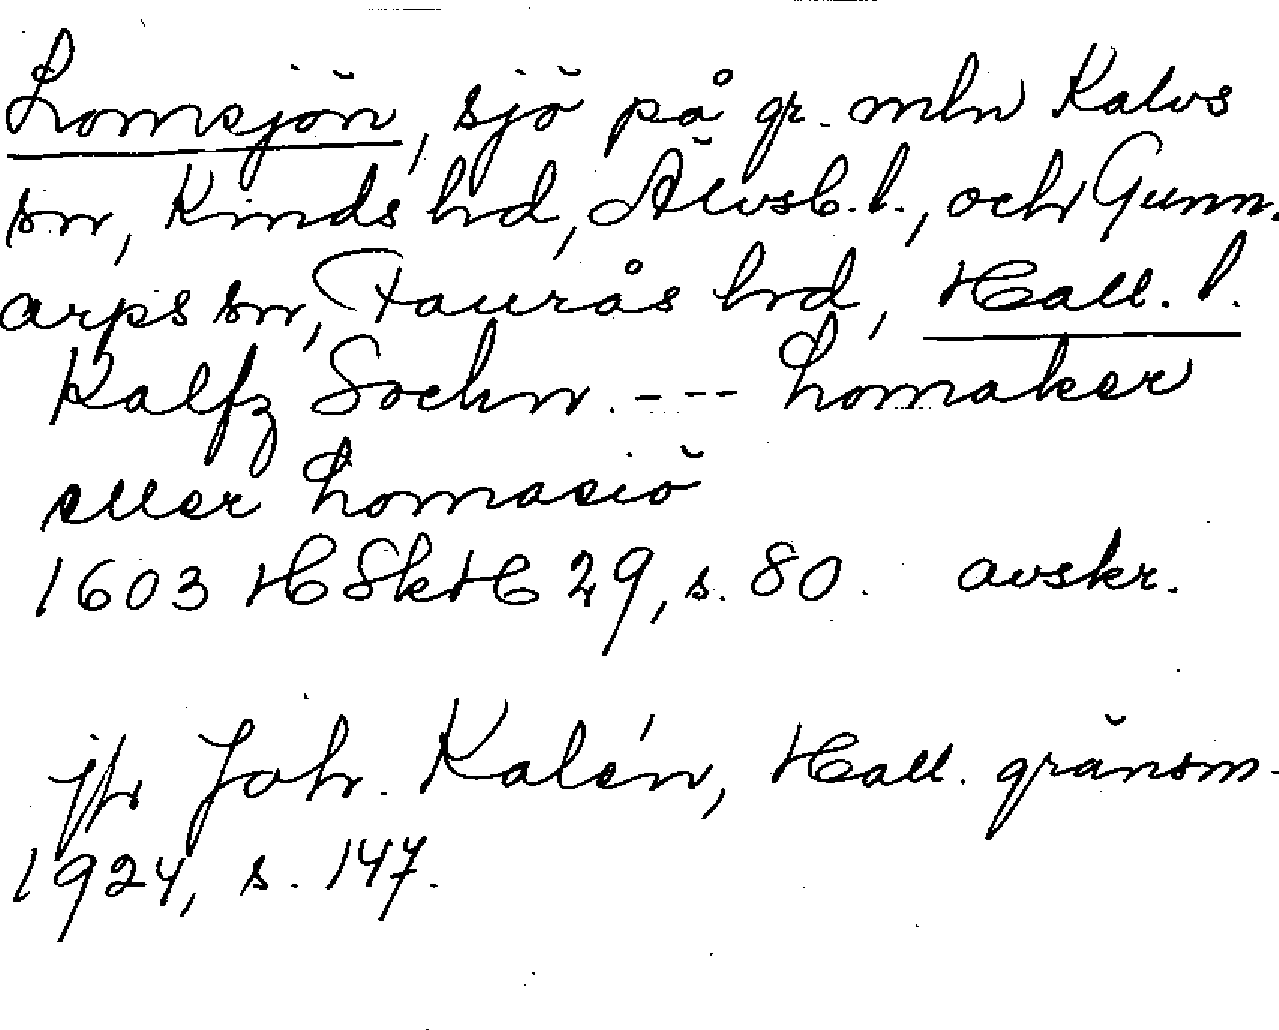 Lomsjön, sjö på gr. mln Kalvs
sn, Kinds hd, Älvsb. l., och Gunn-
arps sn, Faurås hd, Hall. l.
Kalfz Sochn. --- Lomaker
eller Lomasiö
1603 HSkH 29, s. 80. avskr.
jfr Joh. Kalén, Hall. gränsm.
1924, s. 147.